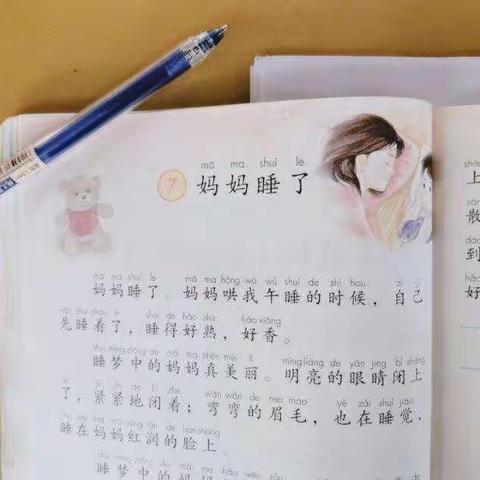 mā ma shuì le
7 妈妈睡了
mā ma shuì le mā ma hǒng wǒ wǔ shuì de shí hou zì jǐ
妈妈睡了。妈妈哄我午睡的时候，自己
xiān shuì zháo le shuì de hǎo shú hǎo xiāng
先睡着了，睡得好熟，好香。
shuì mèng zhōng de mā ma zhēn měi lì míng liàng de yǎn jing bì shàng
睡梦中的妈妈真美丽。明亮的眼睛闭上
le jǐn jǐn de bì zhe wān wān de méi mao yě zài shuì jiào
了，紧紧地闭着；弯弯的眉毛，也在睡觉，
shuì zài mā ma hóng rùn de liǎn shang
睡在妈妈红润的脸上。
shuì mèng zhōng de mā ma hǎo wēn
睡梦中的妈妈
上
散
到
好